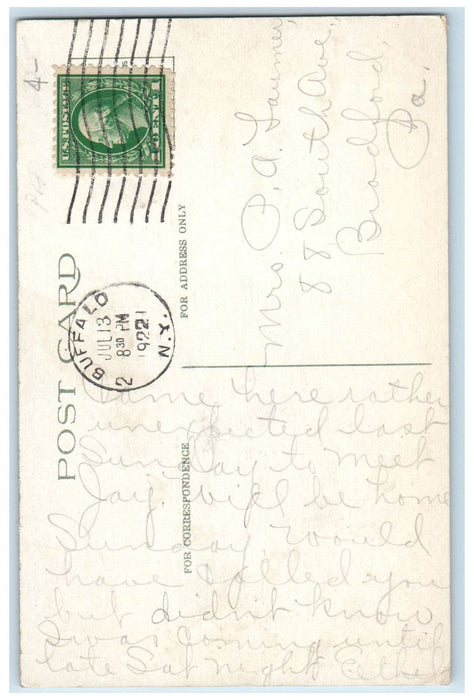 4-
U.S. POSTAGE
1 CENT 1
POST CARD
BUFFALO
N.Y.
2
JUL 13
8 30 PM
1922
FOR ADDRESS ONLY
Mrs. P. A.
88 South Ave,
Bradford,
Pa.
FOR CORRESPONDENCE
Came here rather
unexpected last
Sunday to meet
Jay. Will be home
Sunday. Would
have called you
but didn't know
I was coming until
late Sat night. Ethel